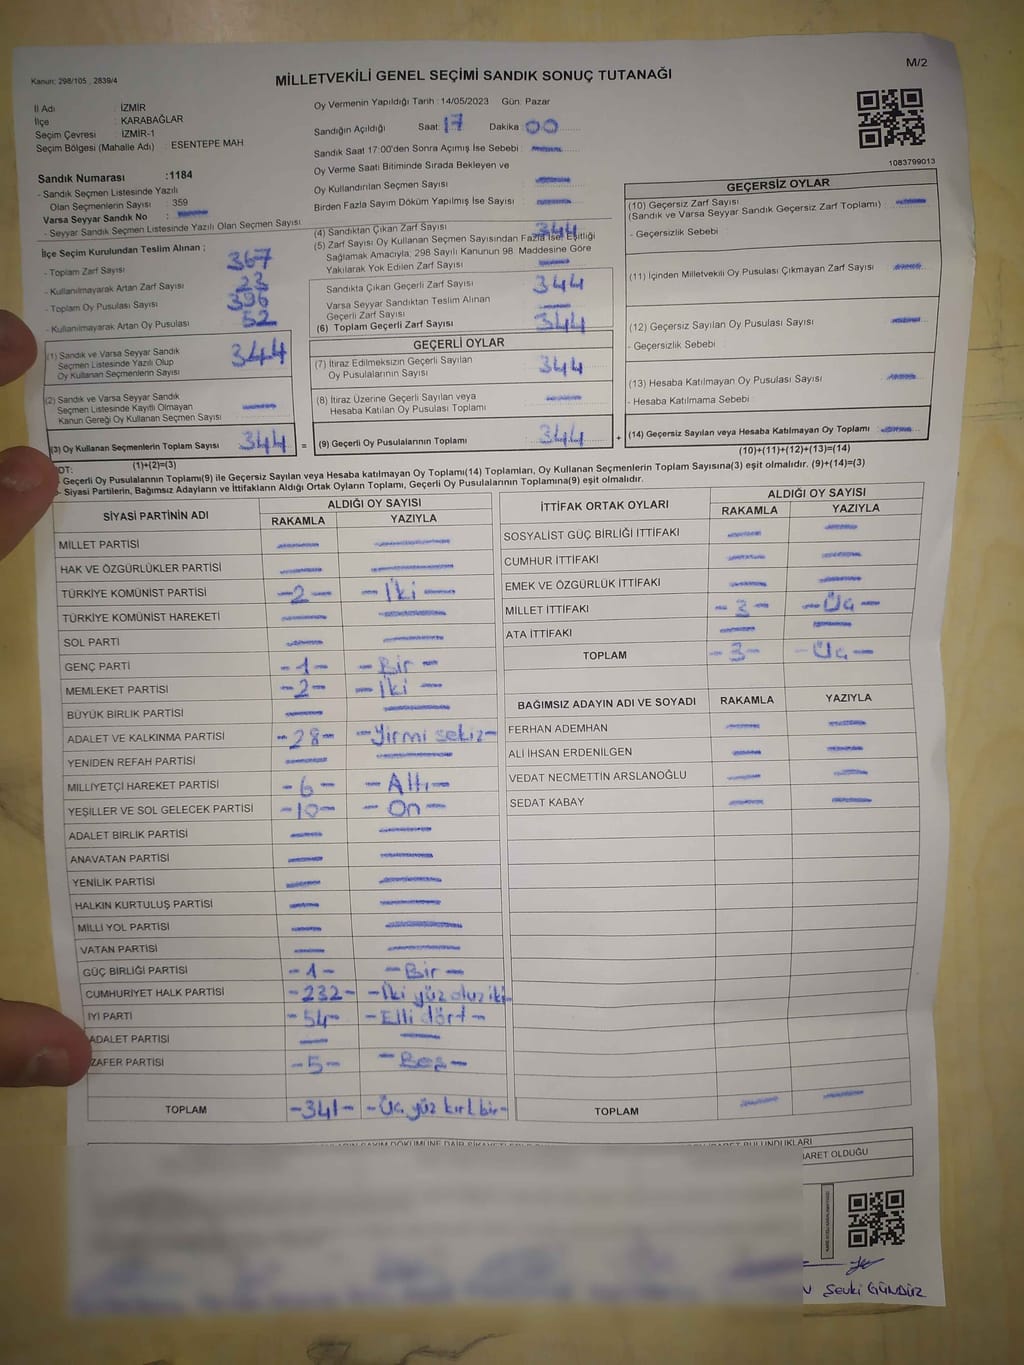 Kanun: 298/105 , 2839/4
MİLLETVEKİLİ GENEL SEÇİMİ SANDIK SONUÇ TUTANAĞI
M/2
İl Adı : İZMİR
İlçe : KARABAĞLAR
Seçim Çevresi : İZMİR-1
Seçim Bölgesi (Mahalle Adı) : ESENTEPE MAH
Sandık Numarası :1184
- Sandık Seçmen Listesinde Yazılı
Olan Seçmenlerin Sayısı : 359
Varsa Seyyar Sandık No :
- Seyyar Sandık Seçmen Listesinde Yazılı Olan Seçmen Sayısı
Oy Vermenin Yapıldığı Tarih : 14/05/2023 Gün: Pazar
Sandığın Açıldığı Saat: 17 Dakika: 00
Sandık Saat 17:00'den Sonra Açımış İse Sebebi :
Oy Verme Saati Bitiminde Sırada Bekleyen ve
Oy Kullandırılan Seçmen Sayısı :
Birden Fazla Sayım Döküm Yapılmış İse Sayısı :
1083799013
İlçe Seçim Kurulundan Teslim Alınan ;
- Toplam Zarf Sayısı : 367
- Kullanılmayarak Artan Zarf Sayısı : 23
- Toplam Oy Pusulası Sayısı : 396
- Kullanılmayarak Artan Oy Pusulası : 52
(1) Sandık ve Varsa Seyyar Sandık
Seçmen Listesinde Yazılı Olup
Oy Kullanan Seçmenlerin Sayısı : 344
(2) Sandık ve Varsa Seyyar Sandık
Seçmen Listesinde Kayıtlı Olmayan
Kanun Gereği Oy Kullanan Seçmen Sayısı
(3) Oy Kullanan Seçmenlerin Toplam Sayısı 344 =
(1)+(2)=(3)
(4) Sandıktan Çıkan Zarf Sayısı : 344
(5) Zarf Sayısı Oy Kullanan Seçmen Sayısından Fazla İse; Eşitliği
Sağlamak Amacıyla; 298 Sayılı Kanunun 98. Maddesine Göre
Yakılarak Yok Edilen Zarf Sayısı
Sandıkta Çıkan Geçerli Zarf Sayısı : 344
Varsa Seyyar Sandıktan Teslim Alınan
Geçerli Zarf Sayısı :
(6) Toplam Geçerli Zarf Sayısı : 344
GEÇERLİ OYLAR
(7) İtiraz Edilmeksizin Geçerli Sayılan
Oy Pusulalarının Sayısı : 344
(8) İtiraz Üzerine Geçerli Sayılan veya
Hesaba Katılan Oy Pusulası Toplamı :
(9) Geçerli Oy Pusulalarının Toplamı : 344 +
GEÇERSİZ OYLAR
(10) Geçersiz Zarf Sayısı :
(Sandık ve Varsa Seyyar Sandık Geçersiz Zarf Toplamı)
- Geçersizlik Sebebi :
(11) İçinden Milletvekili Oy Pusulası Çıkmayan Zarf Sayısı :
(12) Geçersiz Sayılan Oy Pusulası Sayısı :
- Geçersizlik Sebebi :
(13) Hesaba Katılmayan Oy Pusulası Sayısı :
- Hesaba Katılmama Sebebi :
(14) Geçersiz Sayılan veya Hesaba Katılmayan Oy Toplamı :
(10)+(11)+(12)+(13)=(14)
OT:
Geçerli Oy Pusulalarının Toplamı(9) ile Geçersiz Sayılan veya Hesaba katılmayan Oy Toplamı(14) Toplamları, Oy Kullanan Seçmenlerin Toplam Sayısına(3) eşit olmalıdır. (9)+(14)=(3)
- Siyasi Partilerin, Bağımsız Adayların ve İttifakların Aldığı Ortak Oyların Toplamı, Geçerli Oy Pusulalarının Toplamına(9) eşit olmalıdır.
SİYASİ PARTİNİN ADI
ALDIĞI OY SAYISI
RAKAMLA YAZIYLA
MİLLET PARTİSİ
HAK VE ÖZGÜRLÜKLER PARTİSİ
TÜRKİYE KOMÜNİST PARTİSİ -2- -İki-
TÜRKİYE KOMÜNİST HAREKETİ
SOL PARTİ
GENÇ PARTİ -1- -Bir-
MEMLEKET PARTİSİ -2- -İki-
BÜYÜK BİRLİK PARTİSİ
ADALET VE KALKINMA PARTİSİ -28- -Yirmi sekiz-
YENİDEN REFAH PARTİSİ
MİLLİYETÇİ HAREKET PARTİSİ -6- -Altı-
YEŞİLLER VE SOL GELECEK PARTİSİ -10- -On-
ADALET BİRLİK PARTİSİ
ANAVATAN PARTİSİ
YENİLİK PARTİSİ
HALKIN KURTULUŞ PARTİSİ
MİLLİ YOL PARTİSİ
VATAN PARTİSİ
GÜÇ BİRLİĞİ PARTİSİ -1- -Bir-
CUMHURİYET HALK PARTİSİ -232- -İki yüz otuz iki-
İYİ PARTİ -54- -Elli dört-
ADALET PARTİSİ
ZAFER PARTİSİ -5- -Beş-
TOPLAM -341- -Üç yüz kırk bir-
İTTİFAK ORTAK OYLARI
ALDIĞI OY SAYISI
RAKAMLA YAZIYLA
SOSYALİST GÜÇ BİRLİĞİ İTTİFAKI
CUMHUR İTTİFAKI
EMEK VE ÖZGÜRLÜK İTTİFAKI
MİLLET İTTİFAKI -3- -Üç-
ATA İTTİFAKI
TOPLAM -3- -Üç-
BAĞIMSIZ ADAYIN ADI VE SOYADI RAKAMLA YAZIYLA
FERHAN ADEMHAN
ALİ İHSAN ERDENİLGEN
VEDAT NECMETTİN ARSLANOĞLU
SEDAT KABAY
TOPLAM
BULUNDUKLARI
ARET OLDUĞU
Şevki GÜNDÜZ